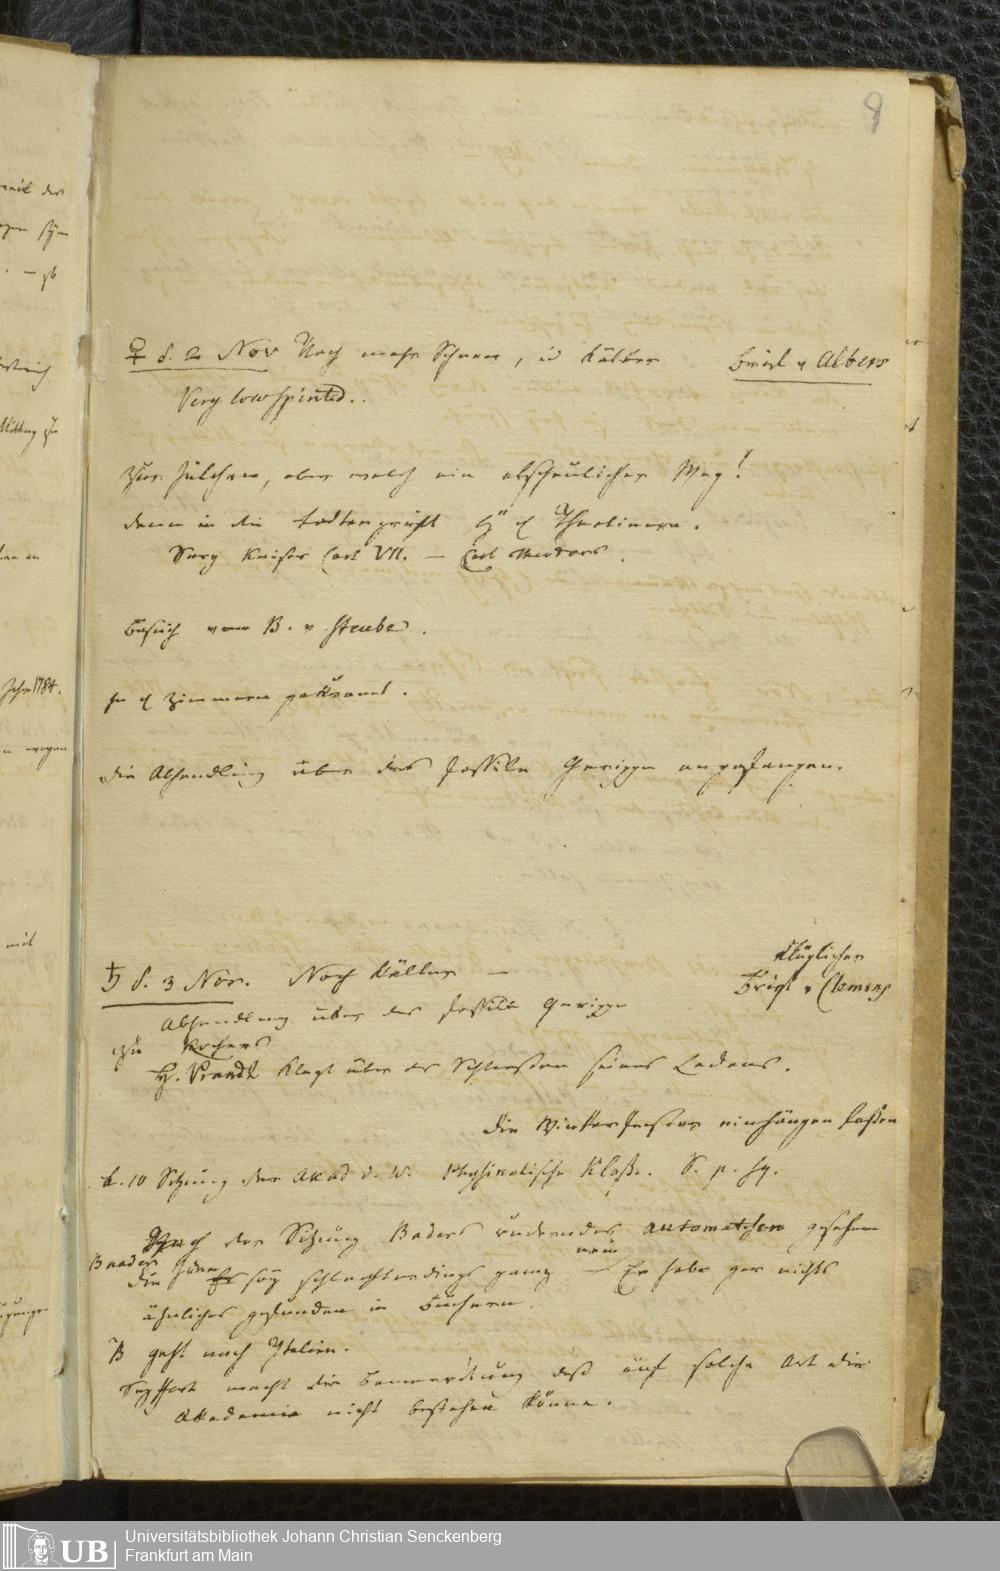 8
♀ d. 2 Nov Noch mehr Schnee, u Kälter
Brief v Albers
Very low spirited..
zur Julchen, aber welch ein abscheulicher Weg!
dann in die todtengruft by d Theatinern.
Sarg Kaiser Carl VII. – Carl Theodors.
Besuch von B. v Steube.
die Abhandlung über das fossile Gerippe angefangen.
♄ d. 3 Nov. Noch Kälter –
Kläglicher
Brief v Clemens
Abhandlung über das fossile Gerippe
zu Kochers
H. Prandt klagt über das Schliessen seines Ladens.
die Winterfenster einhängen lassen
Sitzung der Akad d. W. Physicalische Klasse. S. p. hg.
Nach der Sitzung Baders rudendes automatchen gesehen
Baader
die Idee Es sey schlechterdings ganz neu Er habe gar nichts
ähnliches gefunden in Büchern.
B geht nach Italien.
Seyffert macht die Bemerkung daß auf solche Art die
Akademie nicht bestehen könne.
Jahr 1784.
mit
Universitätsbibliothek Johann Christian Senckenberg
Frankfurt am Main
UB